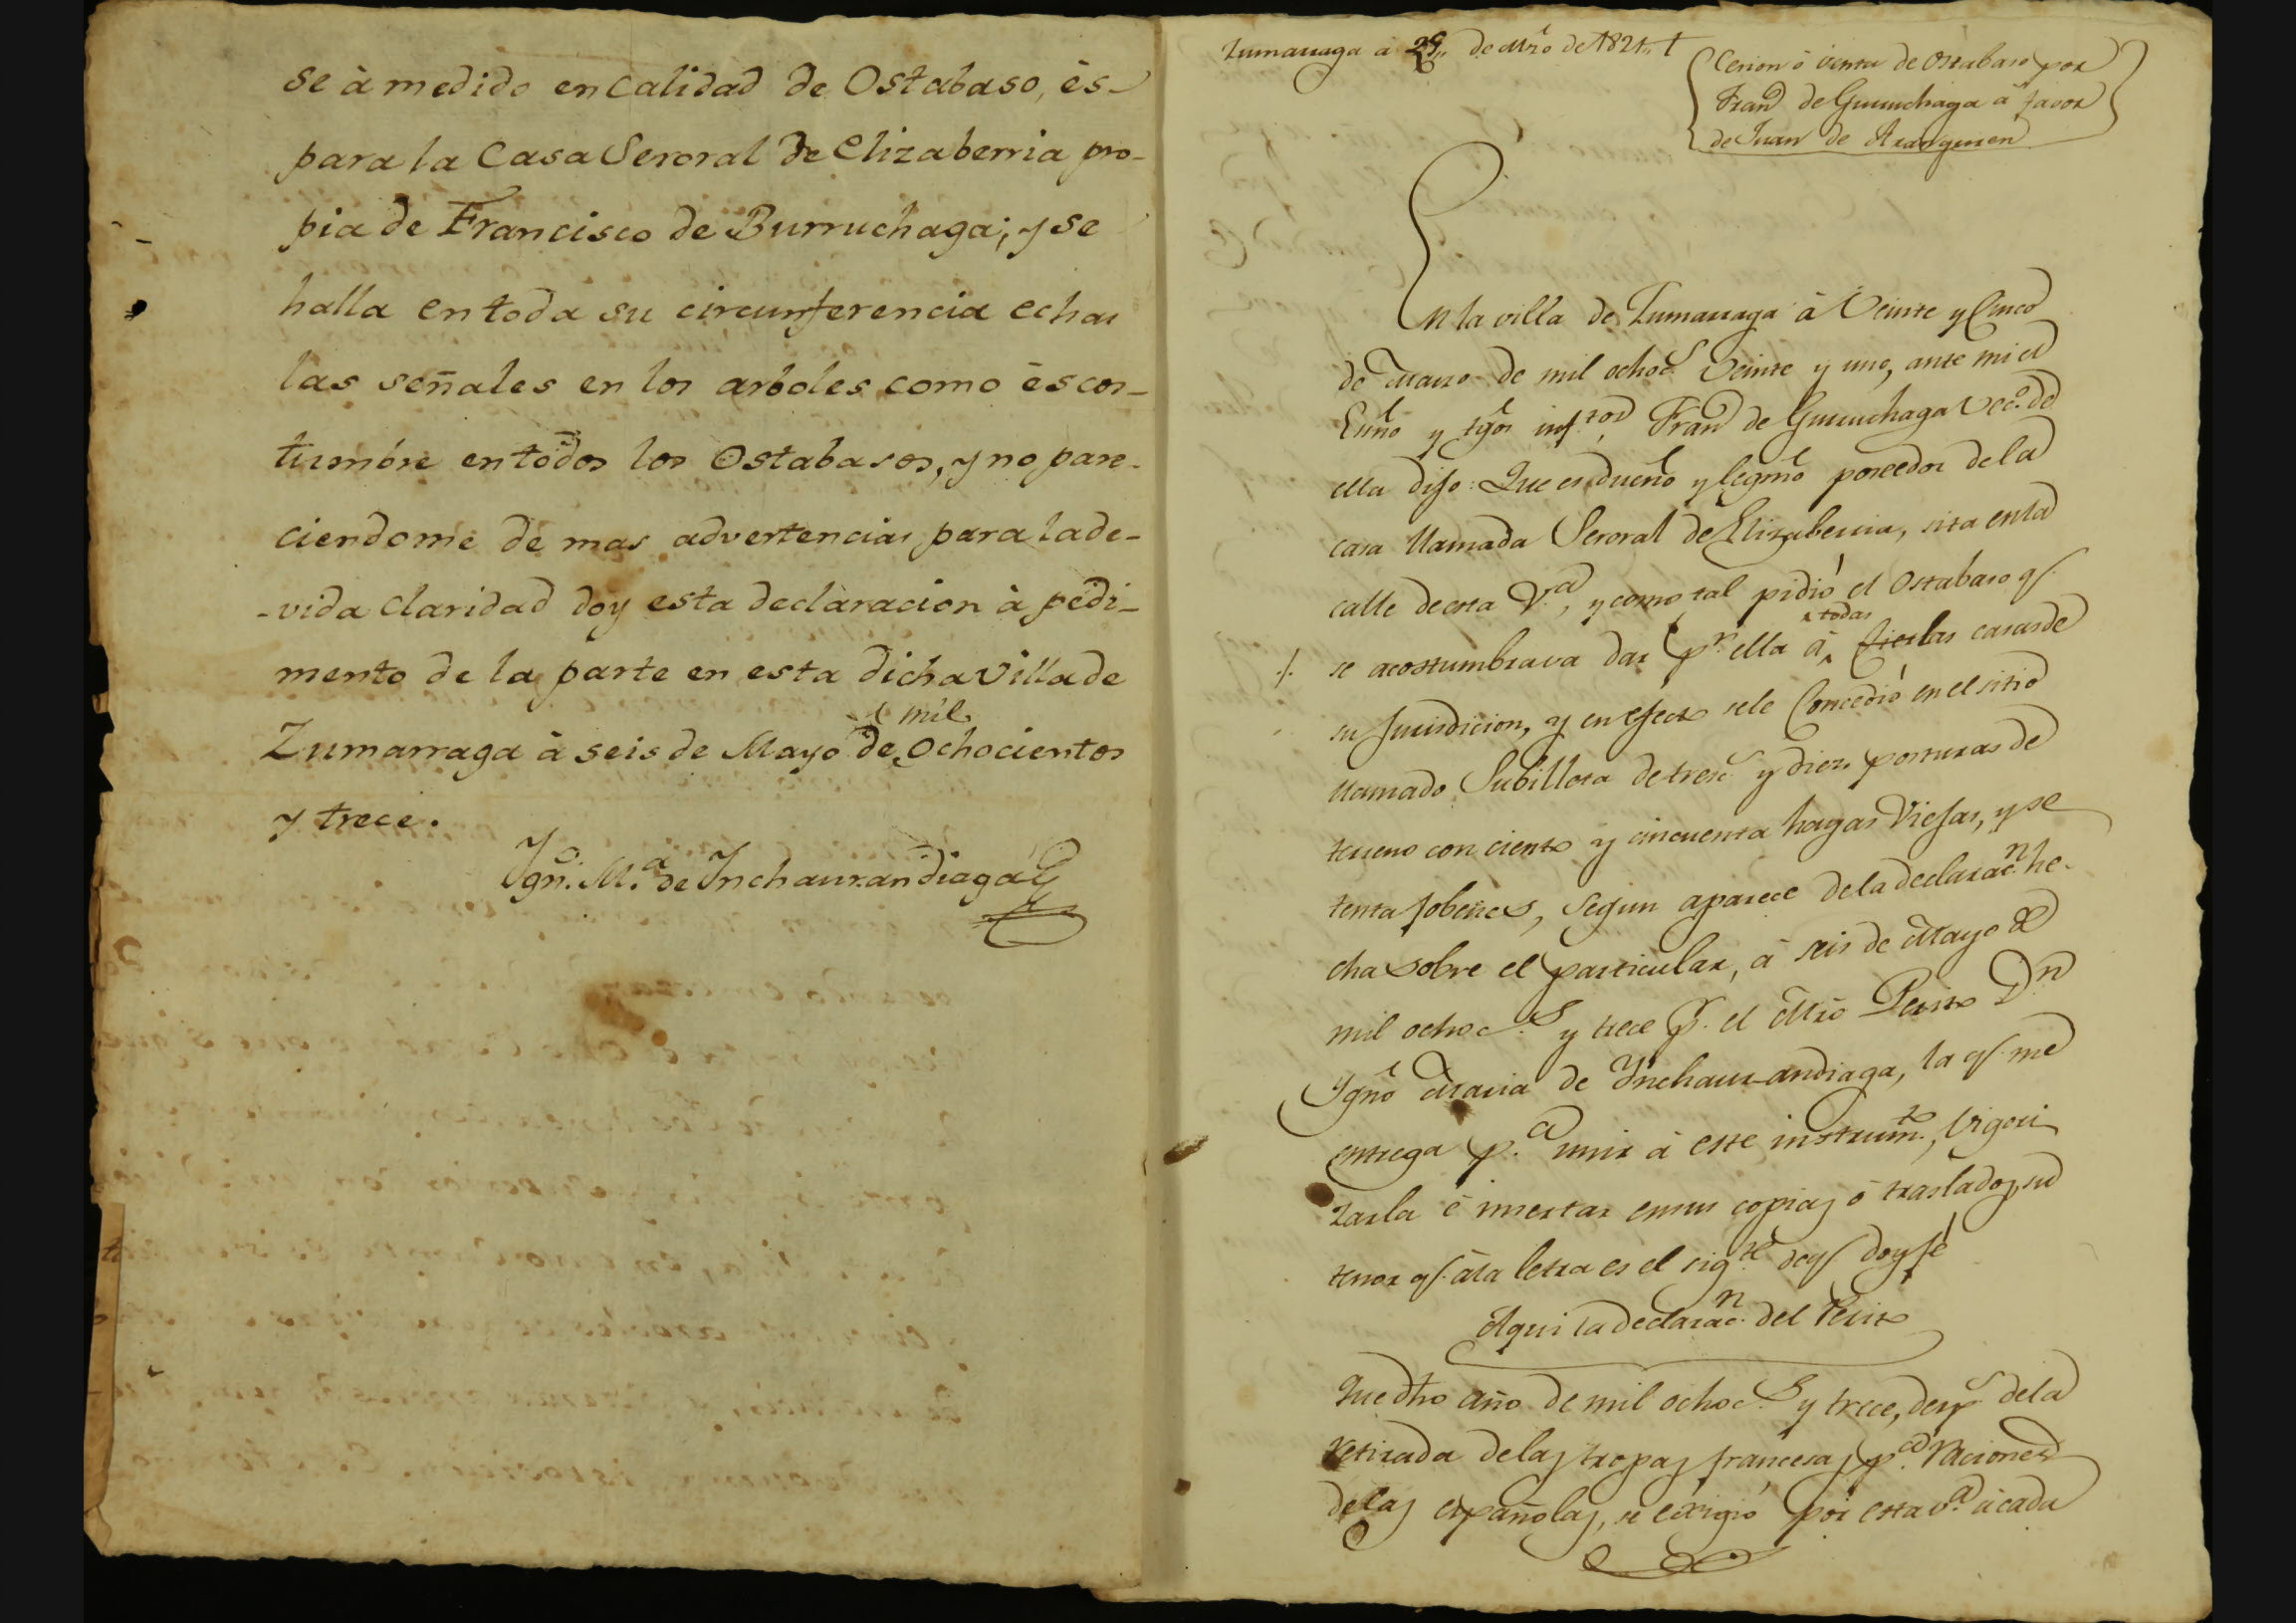 se à medido en Calidad de Ostabaso, ès-
para la Casa Seroral de Elizaberria pro-
pia de Francisco de Burruchaga; y se
halla en toda su circunferencia echas
las señales en los arboles como ès cos-
tumbre en todos los Ostabasos, y no pare-
ciendome de mas advertencias para la de-
-vida Claridad doy esta declaracion à pedi-
mento de la parte en esta dicha Villa de
mil
Zumarraga à seis de Mayo de ochocientos
y trece.
Ygn.º M.ª de Ynchaurandiaga
Zumarraga à de Mrzo de 1821
Cesion ó venta de Ostabaso por
Fran.co de Guruchaga à favor
de Juan de Aranguren
En la villa de Zumarraga à Veinte y Cinco
de Marzo de mil ochoc.s Veinte y uno, ante mi el
Essno y tgos inf.tos, Fran.co de Guruchaga Vec.º de
ella dijo: Que es dueño y legmo poseedor de la
casa llamada Seroral de Elizaberria, sita en la
calle de esta V.a, y como tal pidió el Ostabaso q.
todas
se acostumbrava dar p.r ella à ciertas las casas de
su Jurisdicion, y en efecto se le Concedió en el sitio
llamado Subillora de tresc.s y diez posturas de
terreno con ciento y cincuenta hayas Viejas, y se
tenta jobenes, segun aparece de la declarac.n he-
cha sobre el particular, à seis de Mayo de
mil ochoc.s y trece p.r el Mro Perito D.n
Ygno Maria de Ynchaurrandiaga, la q. me
entrega p.a unir à este instrum.to, Vigori
zarla è insertar en sus copias ó traslados, su
tenor q. à la letra es el sig.te de q. doy fé
Aqui la declarac.n del Perito
Que dho año de mil ochoc.s y trece, desp.s de la
retirada de las tropas francesas p.a raciones
de las españolas, se exigió por esta v.a à cada